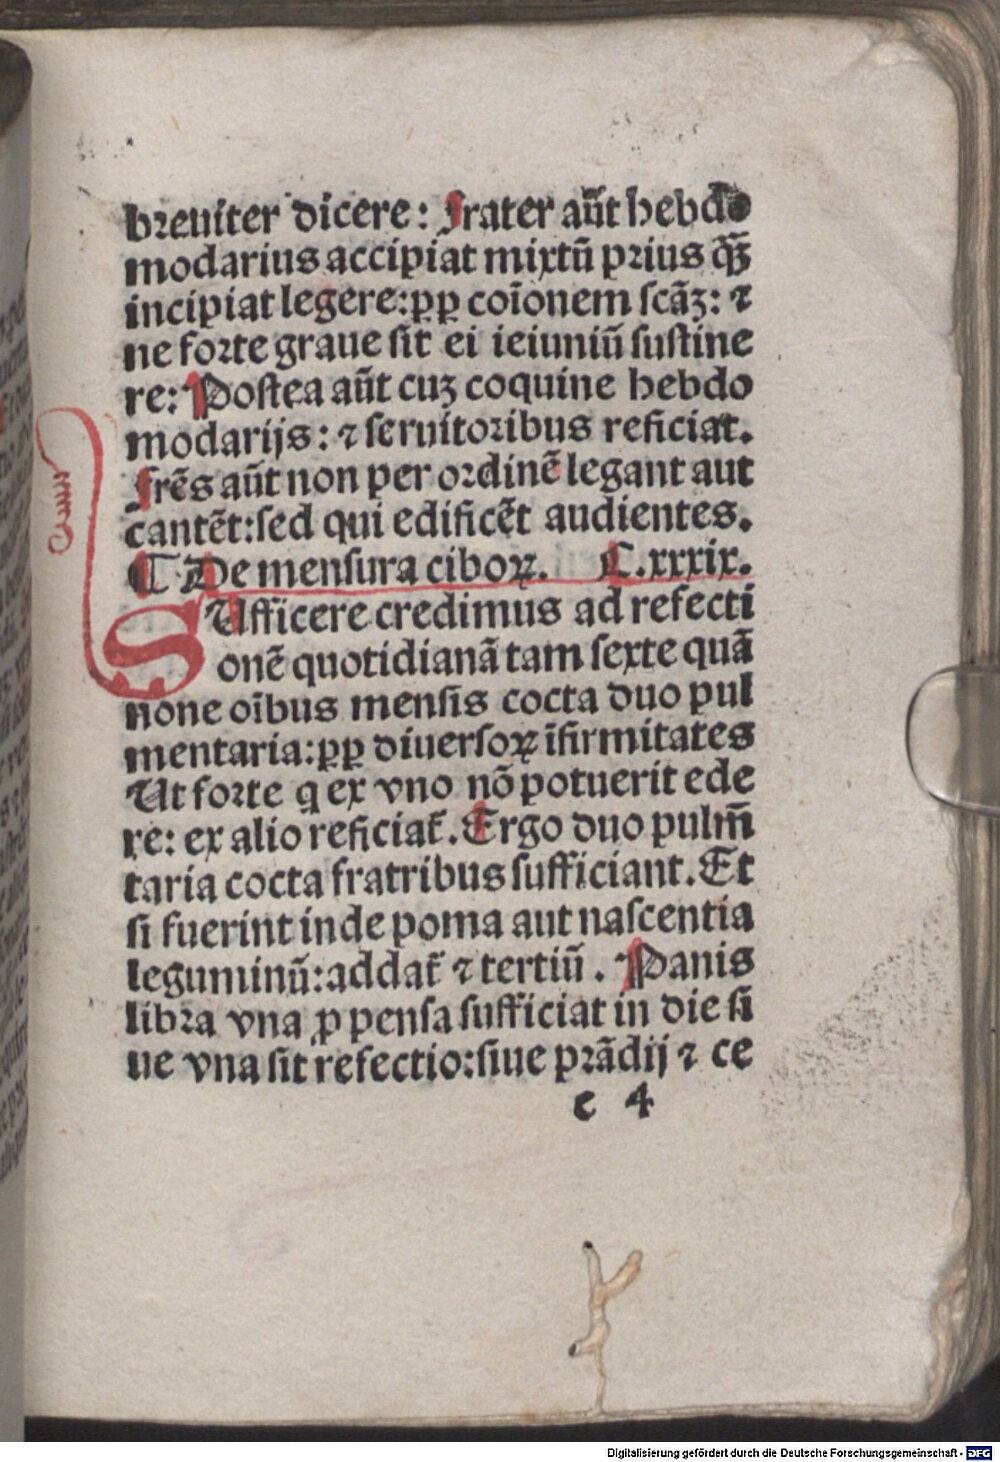 breuiter dicere: Frater aūt hebdo
modarius accipiat mixtū prius qꝫ̄
incipiat legere: ꝓp coīonem scāꝫ: ⁊
ne forte graue sit ei ieiuniū sustine
re: Postea aūt cuꝫ coquine hebdo
modarijs: ⁊ seruitoribus reficiat.
Frēs aūt non per ordinē legant aut
cantēt: sed qui edificēt audientes.
¶ De mensura ciboꝝ. C. xxxix.
SUfficere credimus ad refecti
onē quotidianā tam sexte quā
none oībus mensis cocta duo pul
mentaria: ꝓp diuersoꝝ īfirmitates
Ut forte q ex vno nō potuerit ede
re: ex alio reficiat̄. Ergo duo pulm̄
taria cocta fratribus sufficiant. Et
si fuerint inde poma aut nascentia
leguminū: addat̄ ⁊ tertiū. Panis
libra vna ꝓpensa sufficiat in die si
ue vna sit refectio: siue prādij ⁊ ce
c 4
Digitalisierung gefördert durch die Deutsche Forschungsgemeinschaft - DFG